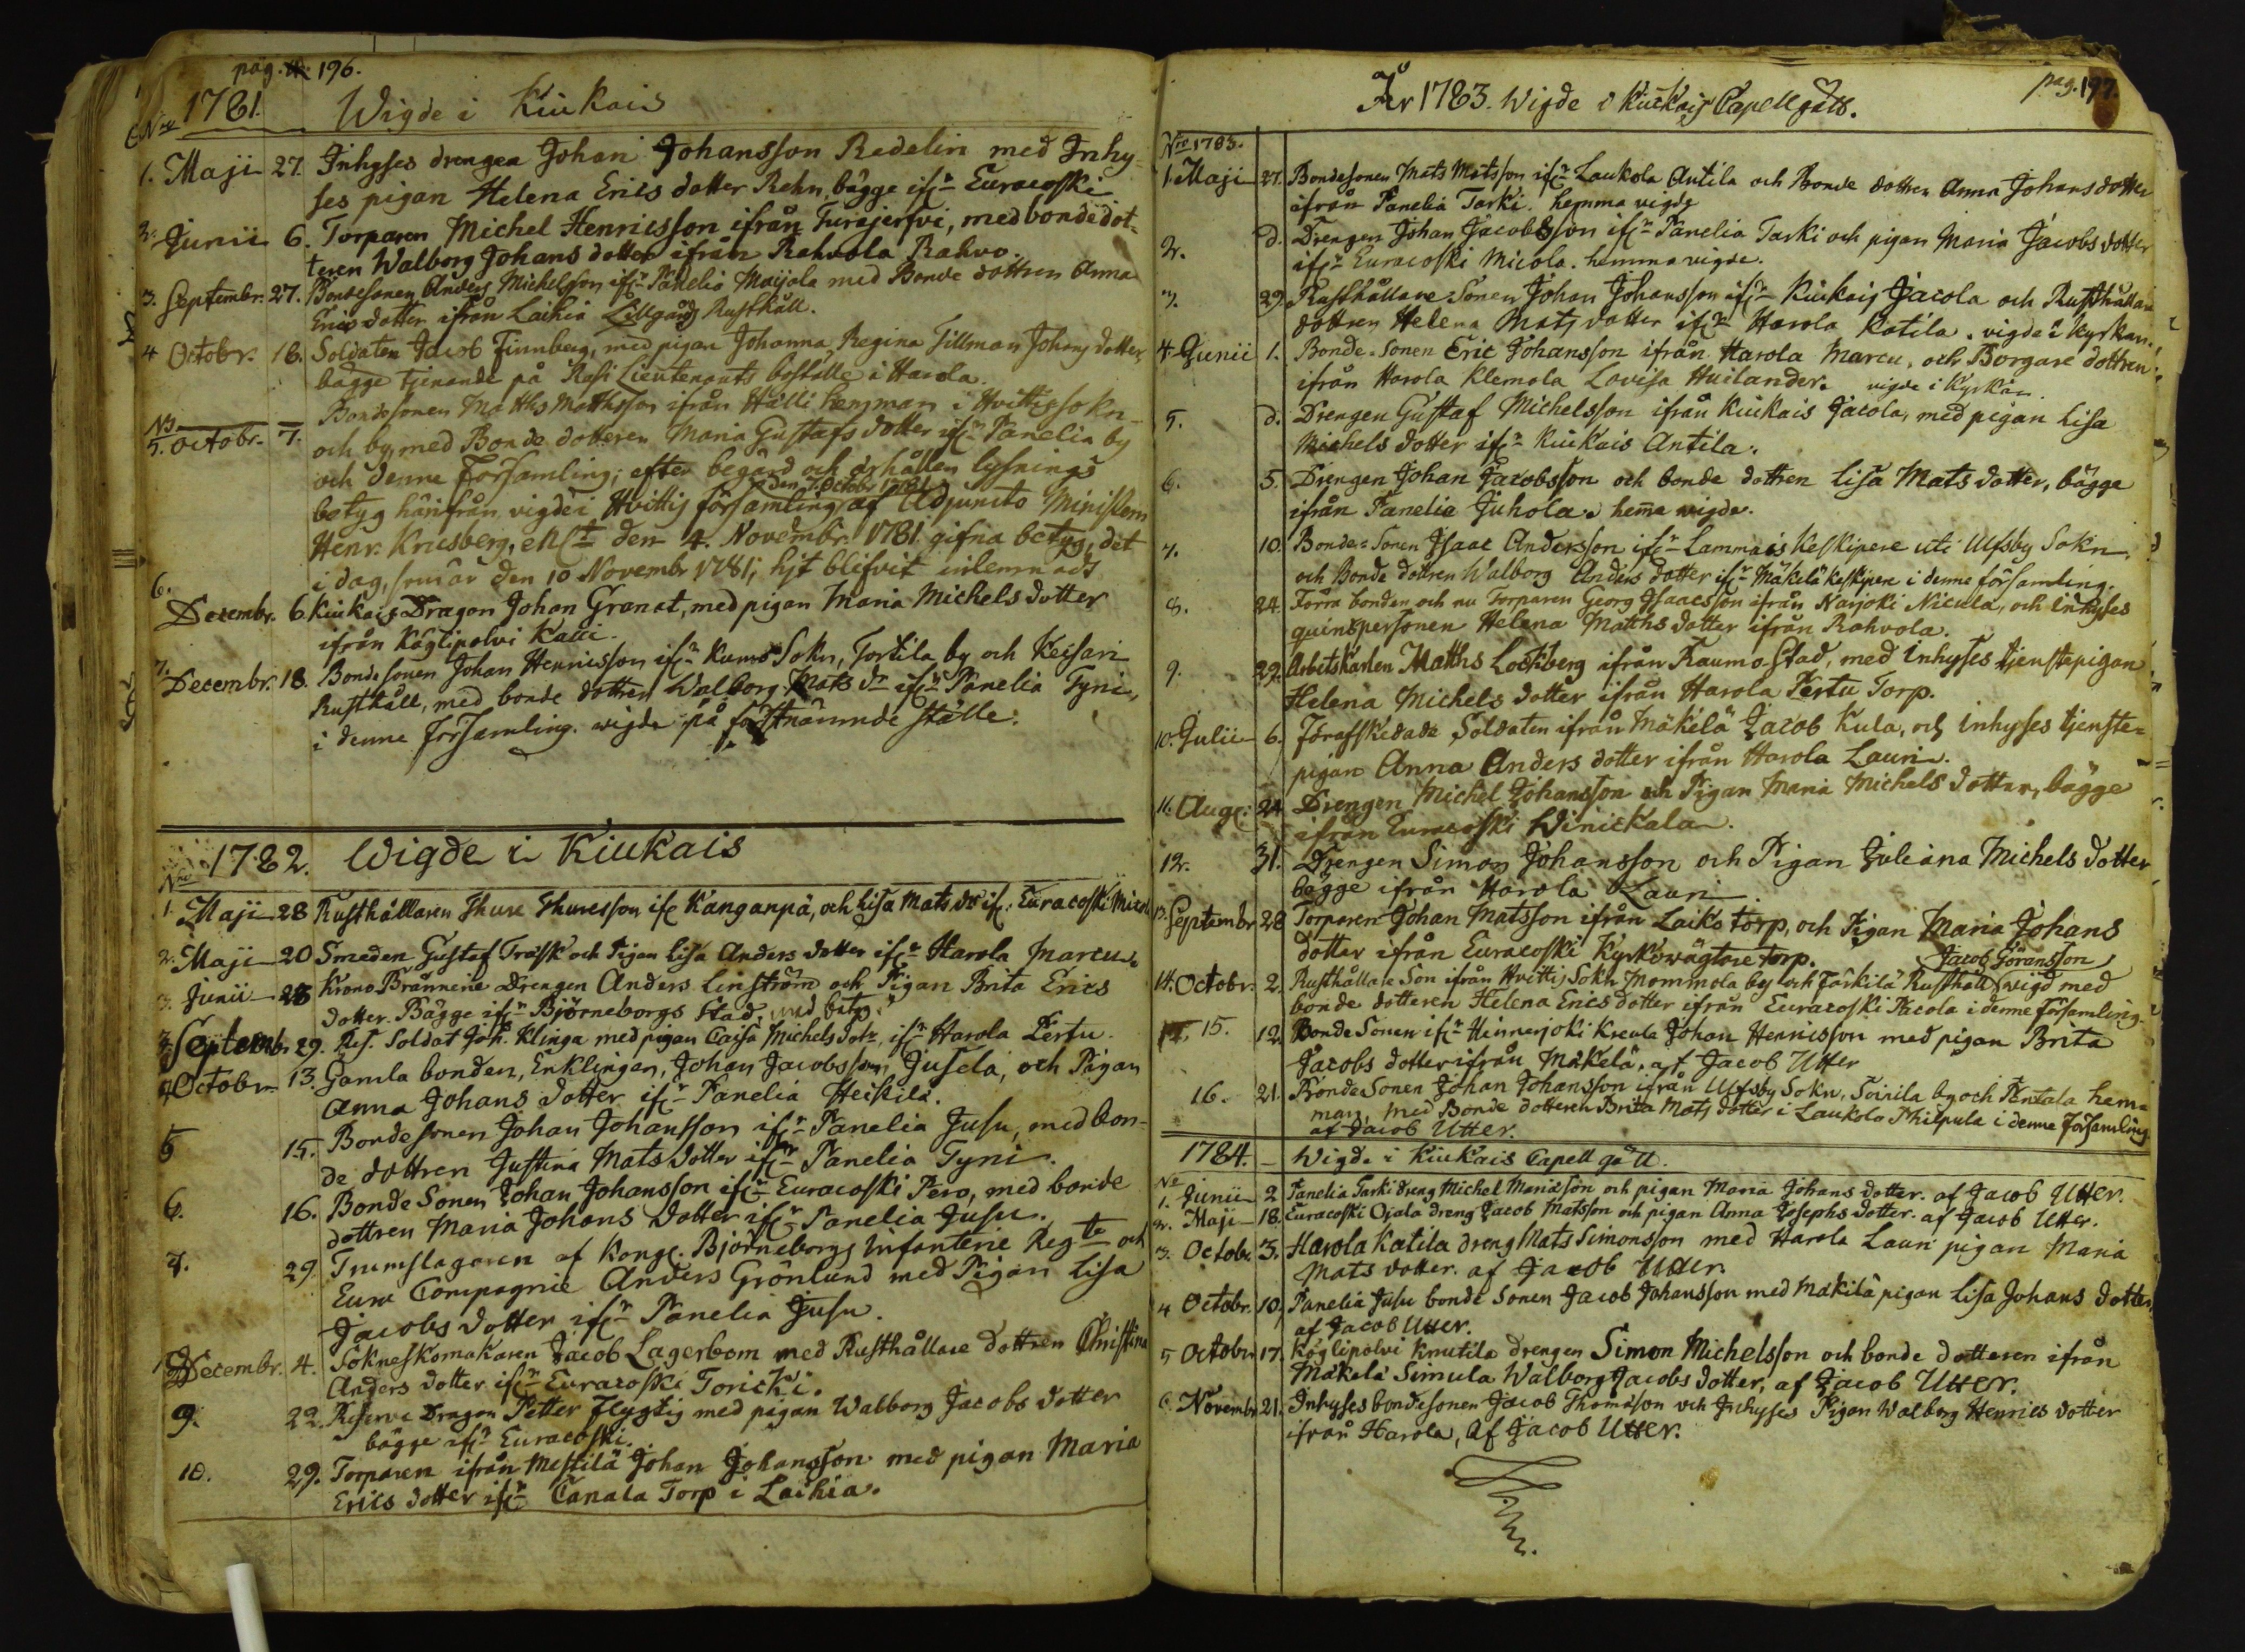 pag. 196.
Nro 1781. Wigde i Kiukais
1. Maji 27. Inhyses drengen Johan Johansson Redelin med Inhy-
ses pigan Helena Erics dotter Rehn, bägge ifrn Euracoski
2. Junii 6. Torparen Michel Henricsson ifrån Turajerfvi, med bondedot-
teren Walborg Johans dotter ifrån Rahvola Rahvo.
3. Septembr. 27. Bondesonen Anders Michelsson ifrn Panelia Maijala med Bonde dottren Anna
Erics dotter ifrån Laihia Lillgård Rusthåll.
4 Octobr. 16. Soldaten Jacob Finnberg, med pigan Johanna Regina Tillman Johans dotter,
bägge tjenande på Rasi Lieutenants boställe i Harola.
Bondesonen Matths Matthsson ifrån Hälli hemman i Hvittis sokn
5. Octobr. 7. och by, med Bonde dotteren Maria Gustafs dotter ifrn Panelia by
och denne Församling; efter begärd och erhållen lysnings
den 7. Octobr 1781
betyg härifrån vigde i Hvittis församling af Adjuncto Ministerii
Henr. Krusberg, enl. den 4. Novembr. 1781 gifna betyg, det
i dag, som är den 10 Novembr 1781, hjt blifvit inlemnadt
6. Decembr. 6. Kiukais Dragon Johan Granat, med pigan Maria Michels dotter
ifrån Köglipolvi Kaui.
7. Decembr. 18. Bondesonen Johan Henricsson ifrn Kumo Sokn, Tortila by och Keisari
Rusthåll, med bonde dottren Walborg Mats dr ifrn Panelia Tyni,
i denne församling. wigde på förstnämnde ställe.
Nro 1782. Wigde i Kiukais
1. Maji 28 Rusthållaren Thure Thuresson ifr Kanganpä, och Lisa Mats dr ifr: Euracoski Micola
2. Maji 20 Smeden Gustaf Träsk och Pigan Lisa Anders dotter ifrn Harola Marcu.
3. Junii 23 Krono Bränneri Drengen Anders Linström och Pigan Brita Erics
dotter. Bägge ifrn Björneborgs Stad, med betyg
3. Septembr 29. Res. Soldat Joh. Klinga med pigan Caisa Michels dotr. ifrn Harola Pertu.
4 Octobr. 13. Gamla bonden, Enklingen, Johan Jacobsson Jusela, och Pigan
Anna Johans dotter ifrn Panelia Heikilä.
5 15. Bondesonen Johan Johansson ifrn Panelia Jusu, med bon-
de dottren Justina Mats dotter ifrn Panelia Tyni.
6. 16. Bonde Sonen Johan Johansson ifrn Euracoski Pero, med bonde
dottren Maria Johans dotter ifrn Panelia Jusu.
7. 29. Trumslagaren af Kongl. Björneborgs Infanterie Regte och
Eura Compagnie Anders Grönlund med Pigan Lisa
Jacobs dotter ifrn Panelia Jusu.
Decembr. 4. Sokneskomakaren Jacob Lagerbom med Rusthållare dottren Christina
Anders dotter ifrn Euracoski Toricki.
9. 22. Reserve Dragon Petter Flygtig med pigan Walborg Jacobs dotter
bägge ifrn Euracoski.
10. 29. Torparen ifrån Mestilä Johan Johansson med pigan Maria
Erics dotter ifrn Canala Torp i Laihia.
pag. 197.
År 1783. Wigde i Kiukais Capell gäll.
Nro 1783.
1. Maji 27. Bondesonen Mats Matsson ifrn Laukola Antila och Bonde dottren Anna Johans dotter
ifrån Panelia Tarki. hemma vigde
2. d. Drengen Johan Jacobsson ifrn Panelia Tarki och pigan Maria Jacobs dotter
ifrn Euracoski Micola. hemma vigde.
3. 29. Rusthållare Sonen Johan Johansson ifrn Kiukais Jacola och Rusthållare
dottren Helena Mats dotter ifrn Harola Katila. vigde i kyrkan.
4. Junii 1. Bonde Sonen Eric Johansson ifrån Harola Marcu, och Borgare dottren
ifrån Harola Klemola Lovisa Huilander. vigde i Kyrkan.
5. d. Drengen Gustaf Michelsson ifrån Kiukais Jacola, med pigan Lisa
Michels dotter ifrn Kiukais Antila.
6. 5. Drengen Johan Jacobsson och bonde dottren Lisa Mats dotter, bägge
ifrån Panelia Juhola. hema wigde.
7. 10. Bonde Sonen Isaac Andersson ifrn Lammais Keskipere uti Ulfsby Sokn,
och Bonde dottren Walborg Anders dotter ifrn Mäkelä Keskipere i denne församling.
8. 24. Förra bonden och nu Torparen Georg Isaacsson ifrån Naijoki Nicula, och inhyses
quinspersonen Helena Matths dotter ifrån Rahvola.
9. 29. Arbetskarlen Matths Lockberg ifrån Raumo Stad, med inhyses tjenstepigan
Helena Michels dotter ifrån Harola Pertu Torp.
10. Julii 6. Förafskedade Soldaten ifrån Mäkelä Jacob Kula, och inhyses tjenste-
pigan Anna Anders dotter ifrån Harola Lauri.
11. Aug: 24 Drengen Michel Johansson och Pigan Maria Michels dotter, bägge
ifrån Euracoski Winickala.
12. 31. Drengen Simon Johansson och Pigan Juliana Michels dotter
bägge ifrån Harola Lauri.
13. Septembr 28 Torparen Johan Matsson ifrån Laiko torp, och Pigan Maria Johans
dotter ifrån Euracoski Kyrkowägtare torp.
Jacob Göransson
14. Octobr. 2. Rusthållare Son ifrån Hvittis Sokn Mommola by och Färkilä Rusthåll wigd med
bonde dotteren Helena Erics dotter ifrån Euracoski Pacola i denne Församling.
15. 12. Bonde Sonen ifrn Hinnerjoki Kreula Johan Henricsson med pigan Brita
Jacobs dotter ifrån Mäkelä, af Jacob Utter
16. 21. Bonde Sonen Johan Johansson ifrån Ulfsby Sokn, Soinila by och Pentala hem-
man, med Bonde dotteren Brita Mats dotter i Laukola Philpula i denne Församling
af Jacob Utter.
1784. Wigde i Kiukais Capell gäll.
No
1. Junii 2 Panelia Tarki dreng Michel Mariason och pigan Maria Johans dotter. af Jacob Utter.
2. Maji 18. Euracoski Ojala dreng Jacob Matsson och pigan Anna Josephs dotter. af Jacob Utter.
3. Octobr. 3. Harola Katila dreng Mats Simonsson med Harola Lauri pigan Maria
Mats dotter. af Jacob Utter.
4 Octobr. 10. Panelia Jusu bonde sonen Jacob Johansson med Mäkilä pigan Lisa Johans dotter,
af Jacob Utter.
5 Octobr 17. Köglipolvi Knutila drengen Simon Michelsson och bonde dotteren ifrån
Mäkelä Simula Walborg Jacobs dotter, af Jacob Utter.
6. Novembr 21. Inhyses bondesonen Jacob Thomasson och Inhyses Pigan Walborg Henrics dotter
ifrån Harola, af Jacob Utter.